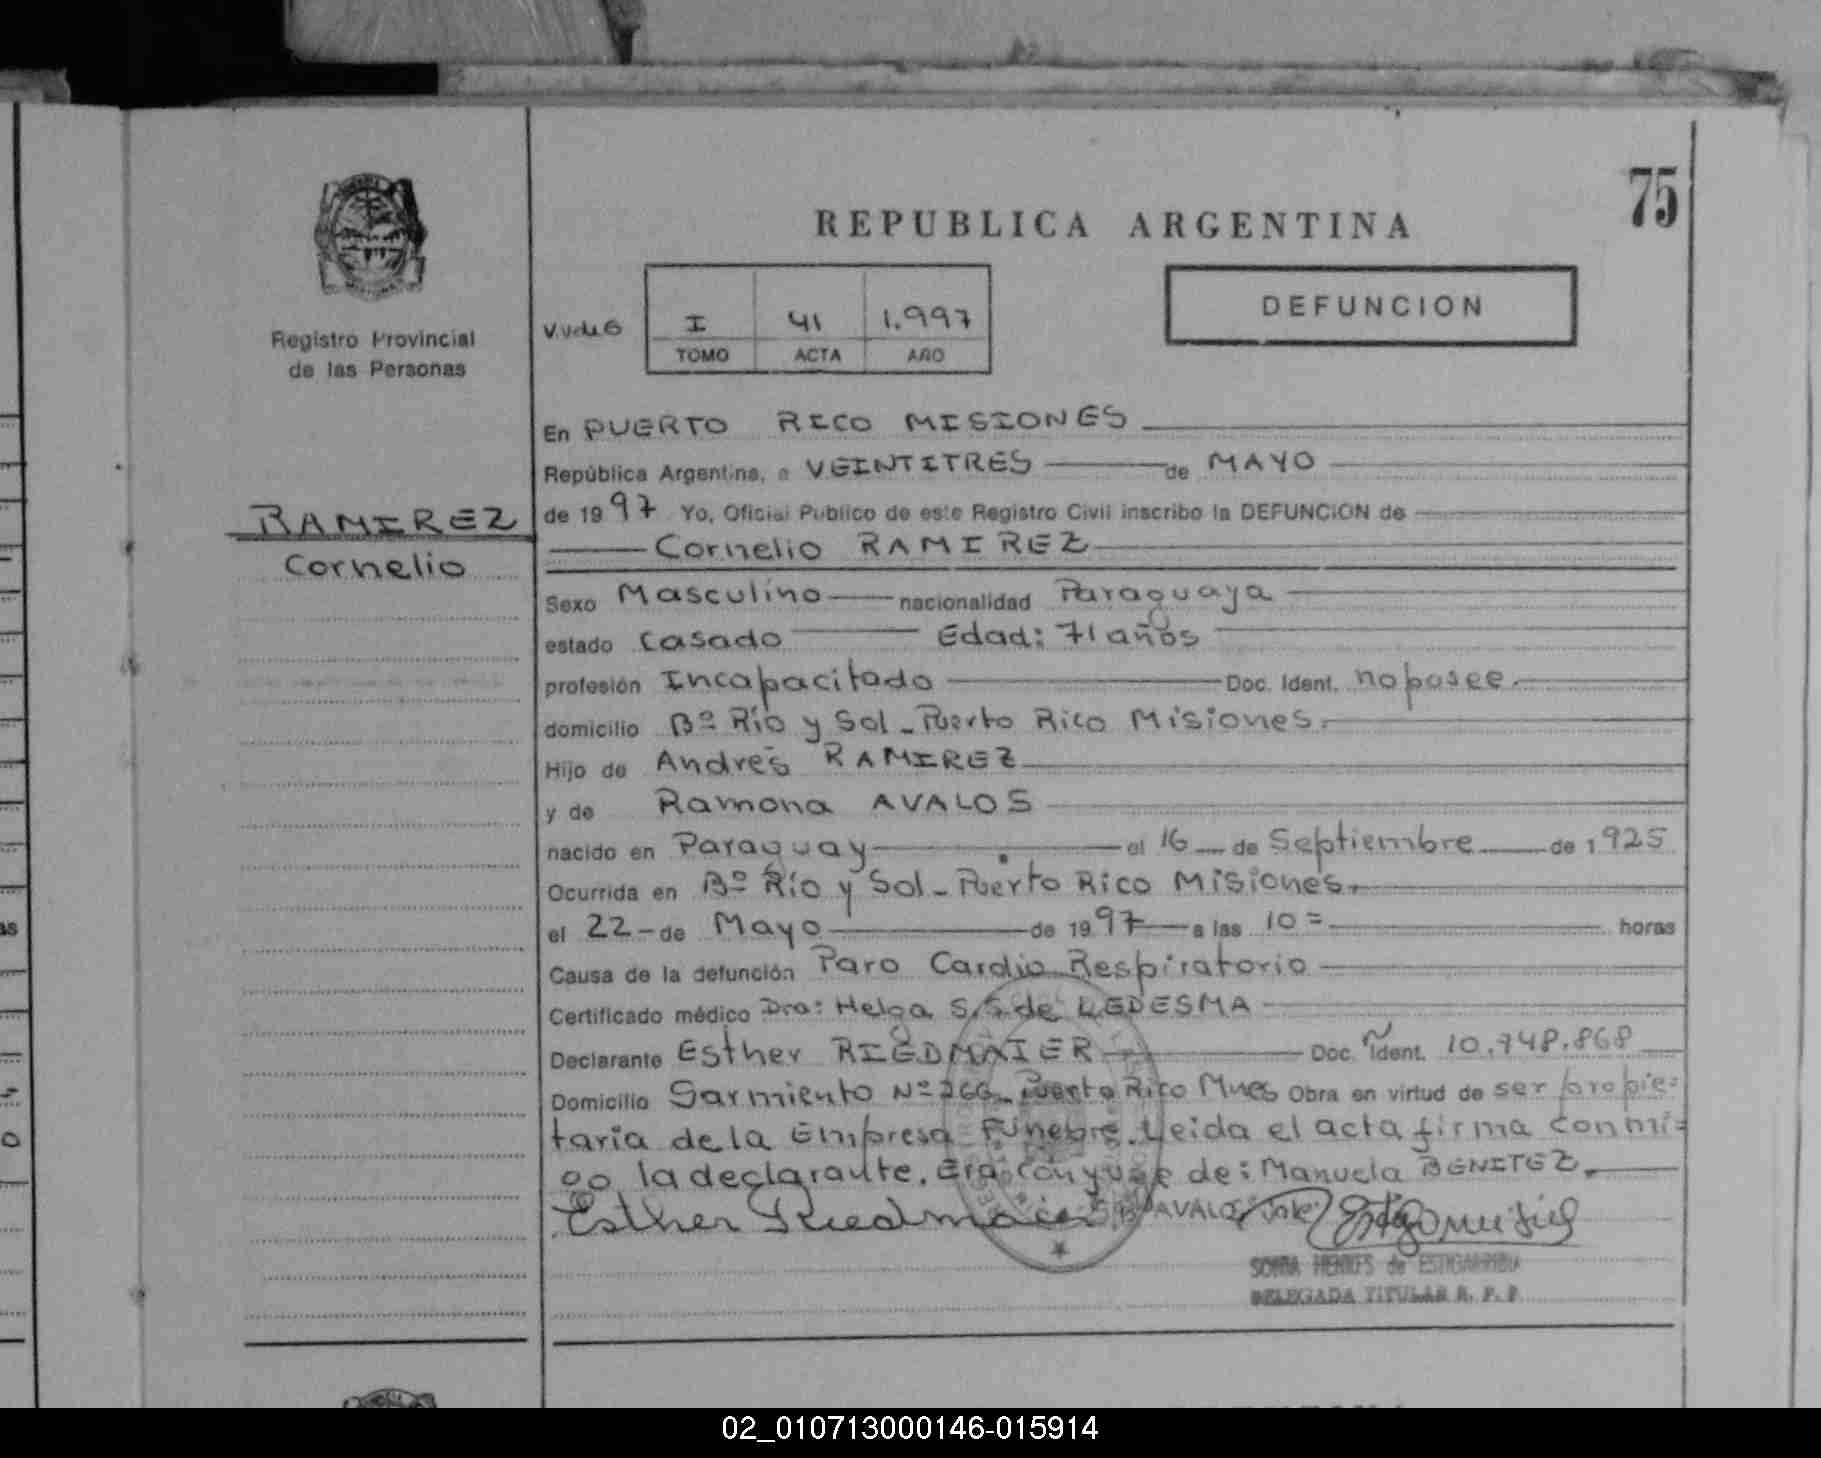 75
REPUBLICA ARGENTINA
DEFUNCION
I 41 1.997
TOMO ACTA AÑO
Registro Provincial
de las Personas
RAMIREZ
Cornelio
En PUERTO RICO MISIONES
República Argentina, a VEINTITRES de MAYO
de 1997 Yo, Oficial Publico de este Registro Civil inscribo la DEFUNCION de
Cornelio RAMIREZ
Sexo Masculino nacionalidad Paraguaya
estado Casado Edad: 71 años
profesión Incapacitado Doc. Ident. no posee.
domicilio Bº Río y Sol - Puerto Rico Misiones.
Hijo de Andrés RAMIREZ
y de Ramona AVALOS
nacido en Paraguay el 16 de Septiembre de 1925
Ocurrida en Bº Río y Sol - Puerto Rico Misiones.
el 22 - de Mayo de 1997 a las 10 = horas
Causa de la defunción Paro Cardio Respiratorio
Certificado médico Dra: Helga S.S. de LEDESMA
Declarante Esther RIEDMAIER Doc. Ident. 10.748.868
Domicilio Sarmiento Nº 266 - Puerto Rico Mnes Obra en virtud de ser propie=
taria de la Empresa Fúnebre. Leida el acta firma conmi=
go la declarante. Era conyuge de: Manuela BENITEZ.
Esther Riedmaier AVALOS: Vale:
SONIA HENKES de ESTIGARRIBIA
DELEGADA TITULAR R. P. P.
02_010713000146-015914